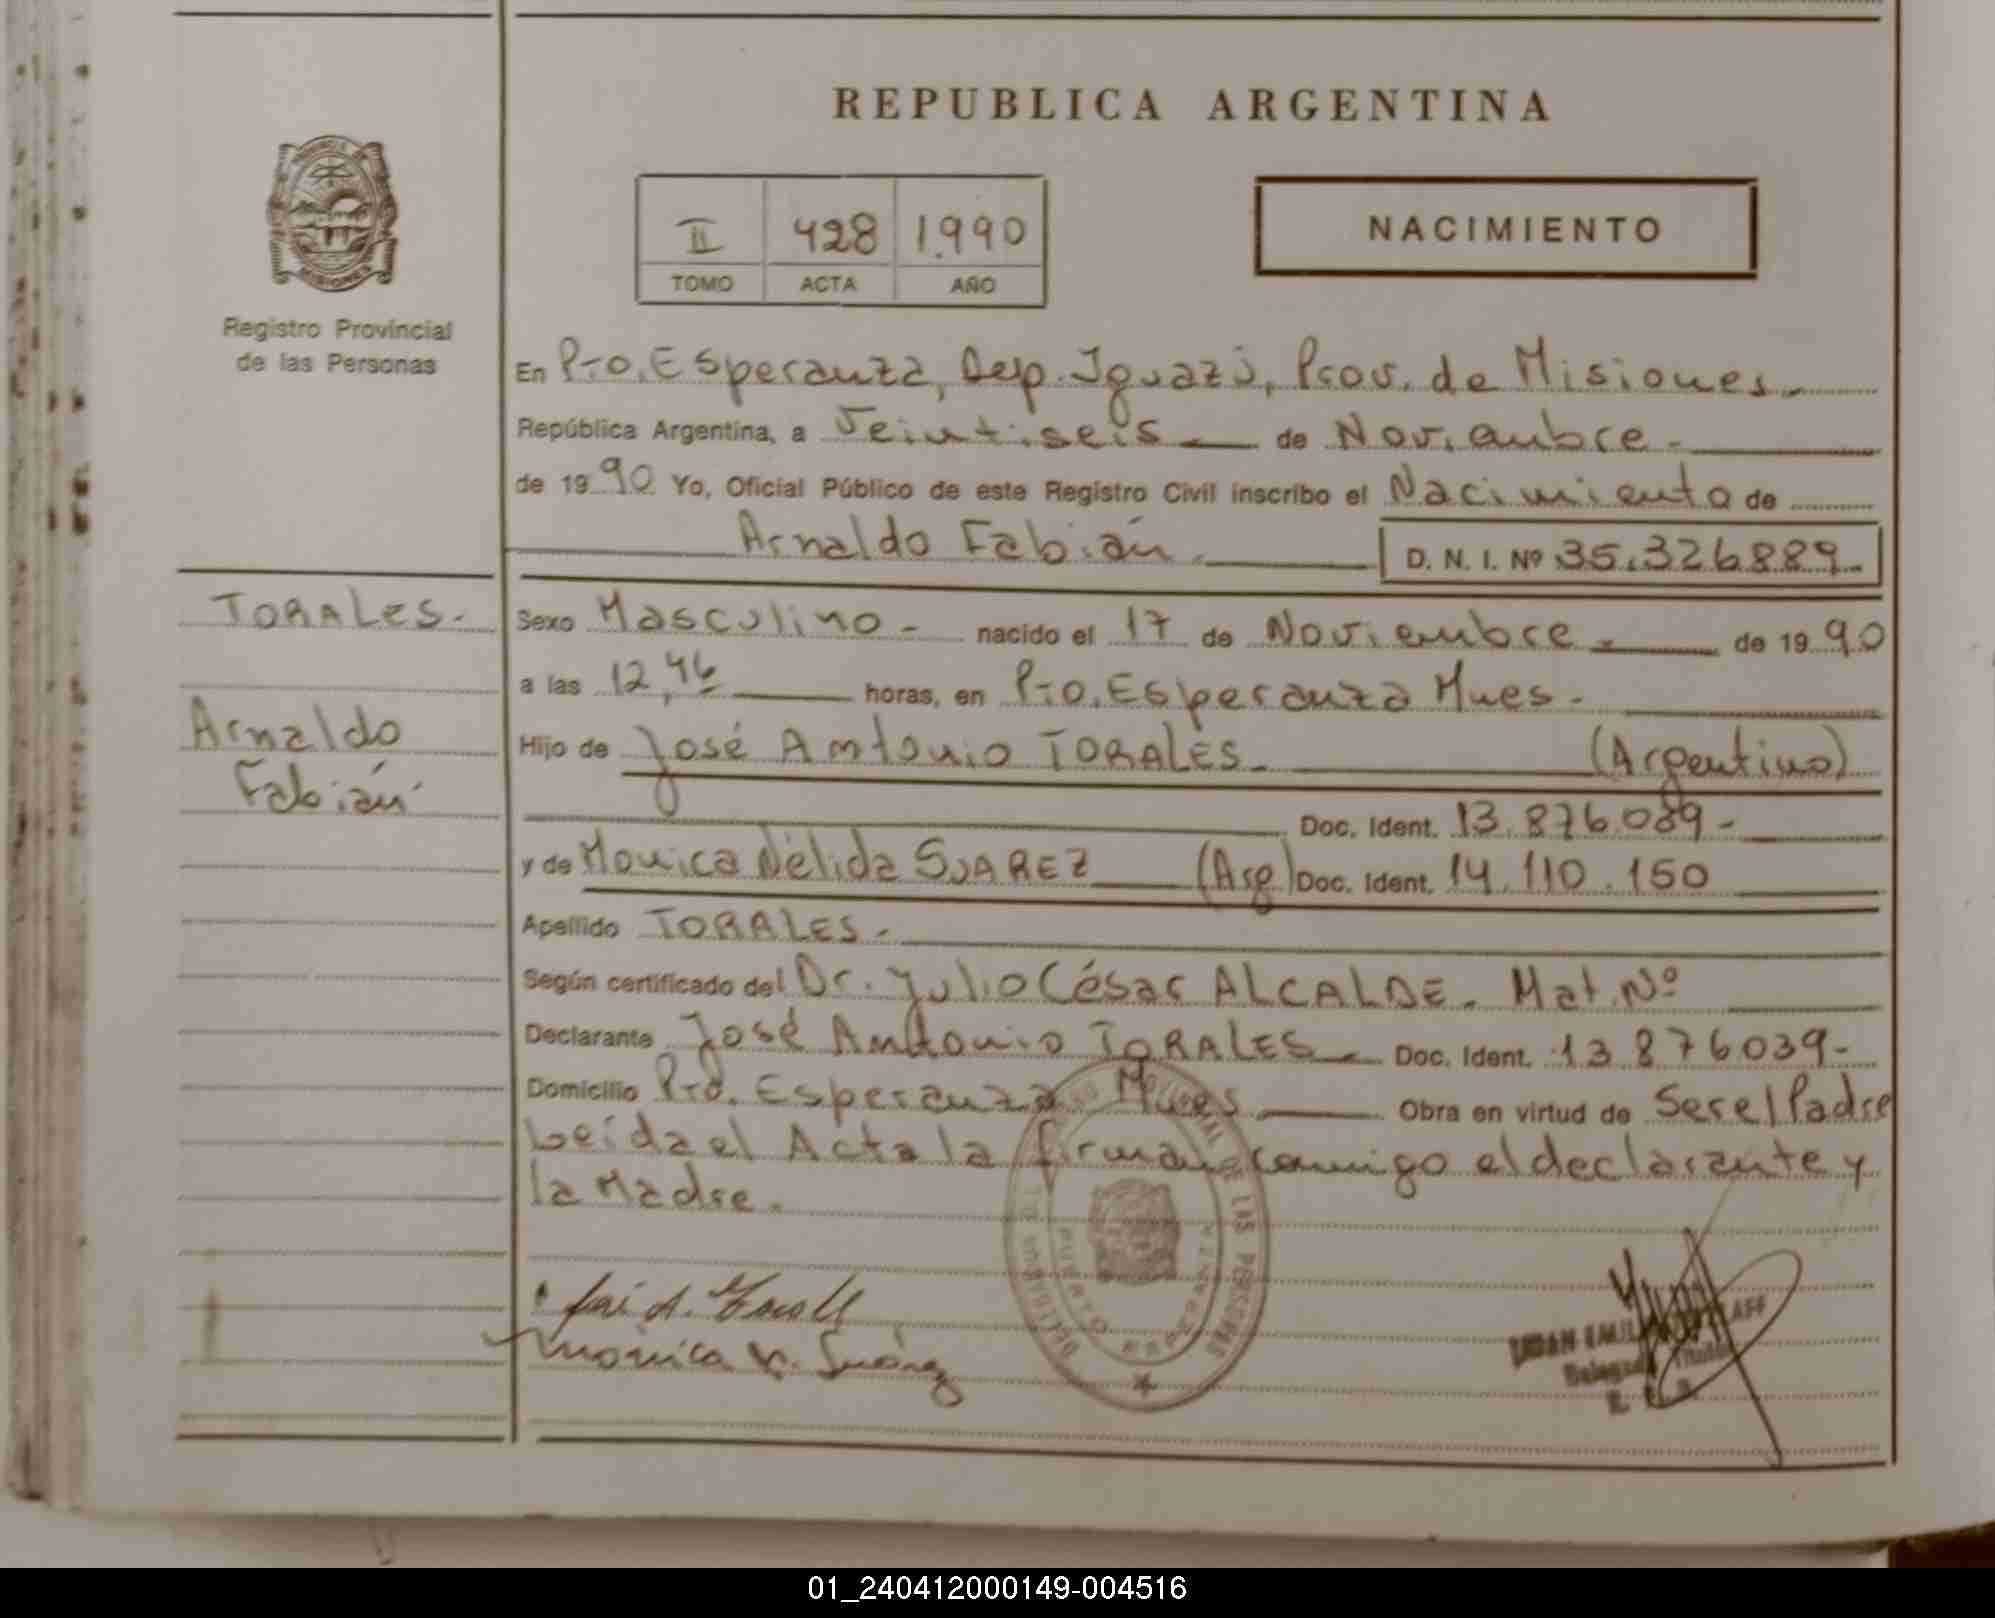 REPUBLICA ARGENTINA
II 428 1.990
TOMO ACTA AÑO
NACIMIENTO
Registro Provincial
de las Personas
En Pto. Esperanza, Dep. Iguazú, Prov. de Misiones.
República Argentina, a Veintiseis de Noviembre.
de 1990 Yo, Oficial Público de este Registro Civil inscribo el Nacimiento de
Arnaldo Fabián. D. N. I. Nº 35.326.889
TORALES.
Arnaldo
Fabián
Sexo Masculino - nacido el 17 de Noviembre. de 1990
a las 12,46 horas, en Pto. Esperanza Mnes.
Hijo de José Antonio TORALES. (Argentino)
Doc. Ident. 13.876.089 -
y de Monica Nélida SUAREZ (Arg) Doc. Ident. 14.110.150
Apellido TORALES.
Según certificado del Dr. Julio César ALCALDE. Mat. Nº
Declarante José Antonio TORALES. Doc. Ident. 13 876039-
Domicilio Pto. Esperanza Mnes Obra en virtud de Ser el Padre
Leída el Acta la firman conmigo el declarante y
la Madre.
DE LAS PERSONAS
PUERTO ESPERANZA
Monica N. Suárez
01_240412000149-004516